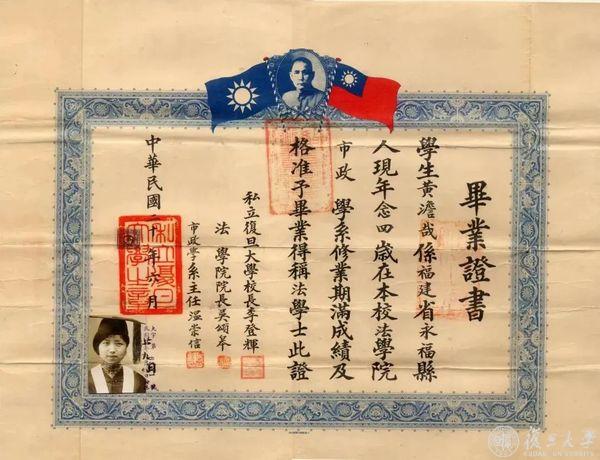 畢業證書
學生黃澹哉係福建省永福縣
人現年念四歲在本校法學院
市政學系修業期滿成績及
格准予畢業得稱法學士此證
私立復旦大學校長李登輝
法學院院長吳頌臯
市政學系主任溫崇信
中華民國二十年六月
復旦大學
FUDAN UNIVERSITY